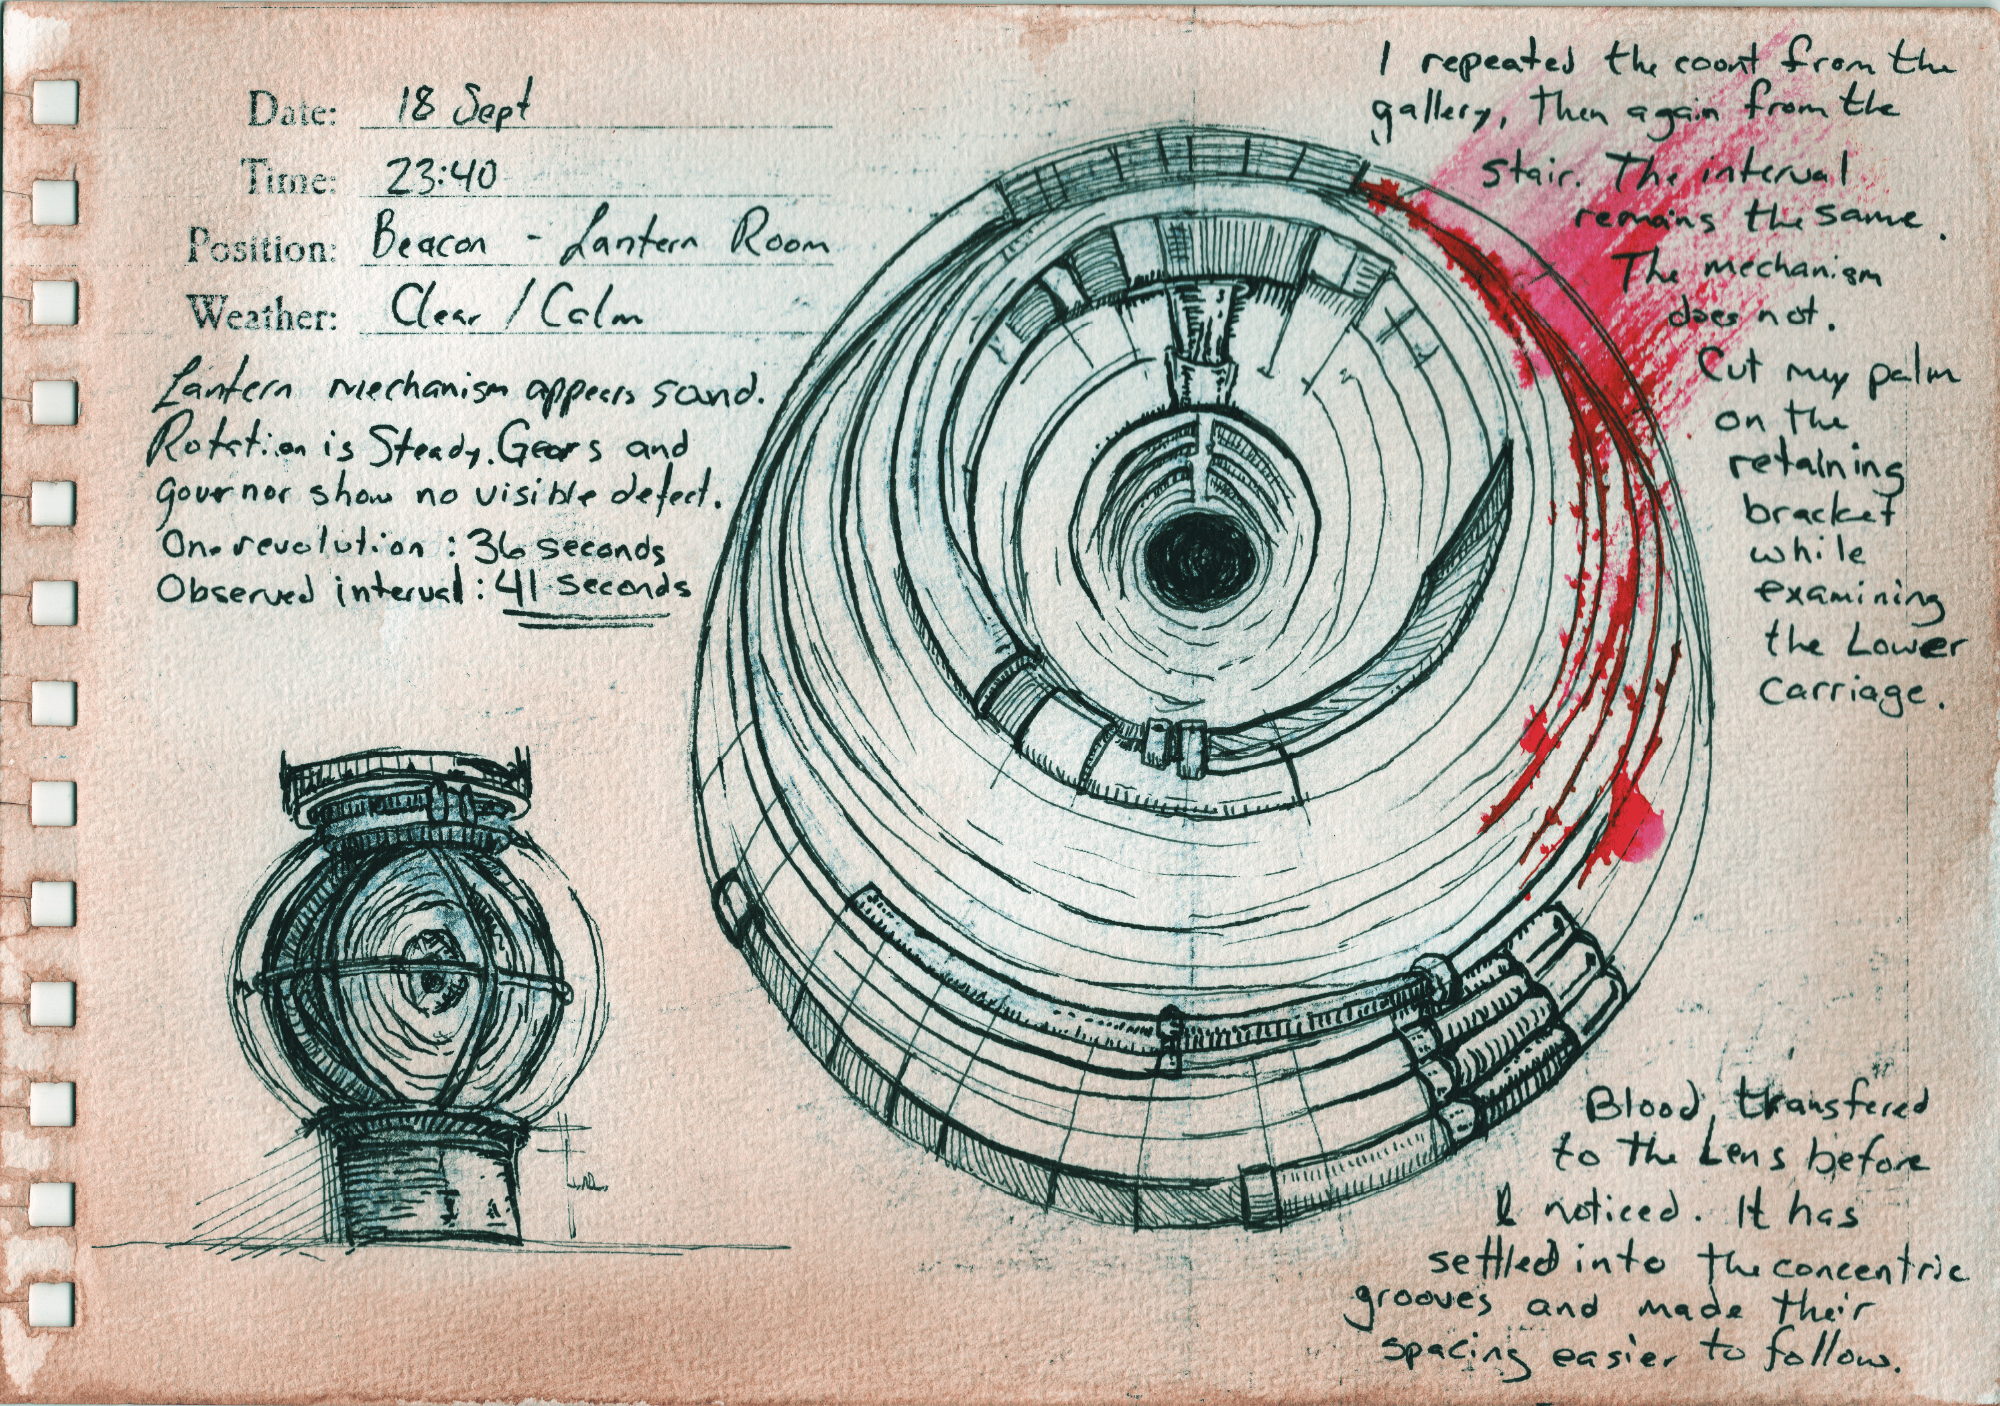 Date: 18 Sept
Time: 23:40
Position: Beacon - Lantern Room
Weather: Clear / Calm
Lantern mechanism appears sound.
Rotation is Steady. Gears and
governor show no visible defect.
One revolution : 36 seconds
Observed interval : 41 seconds
I repeated the count from the
gallery, then again from the
stair. The interval
remains the same.
The mechanism
does not.
Cut my palm
on the
retaining
bracket
while
examining
the Lower
carriage.
Blood, transfered
to the Lens before
I noticed. It has
settled into the concentric
grooves and made their
spacing easier to follow.